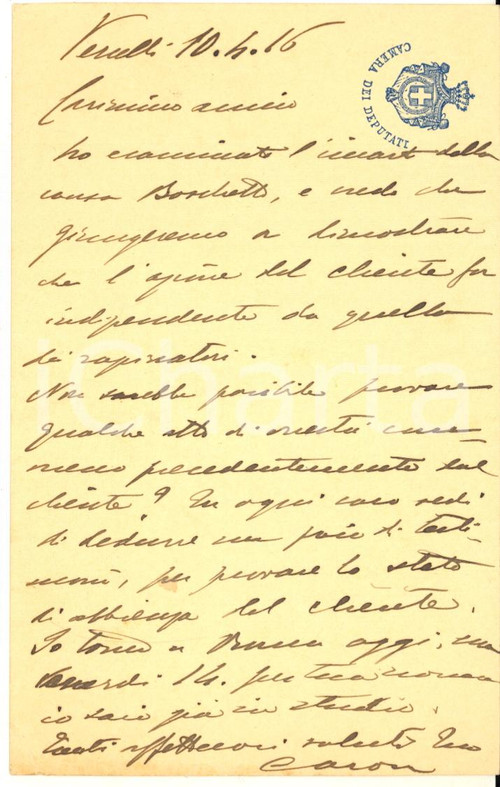 Vercelli 10.4.16
CAMERA DEI DEPUTATI
Carissimo amico
ho esaminato l'incarto della
causa Boschetti, e vedo che
giungeremo a dimostrare
che l'azione del cliente fu
indipendente da quella
dei rapinatori.
Non sarebbe possibile provare
qualche atto di onestà
precedentemente dal
cliente? In ogni caso vedi
di dedurre un paio di testi-
moni, per provare lo stato
di del cliente.
Io torno a Roma oggi, ma
venerdì 14. per tua norma
io sarò già in studio.
Tanti affettuosi saluti tuo
Caron
iCharta